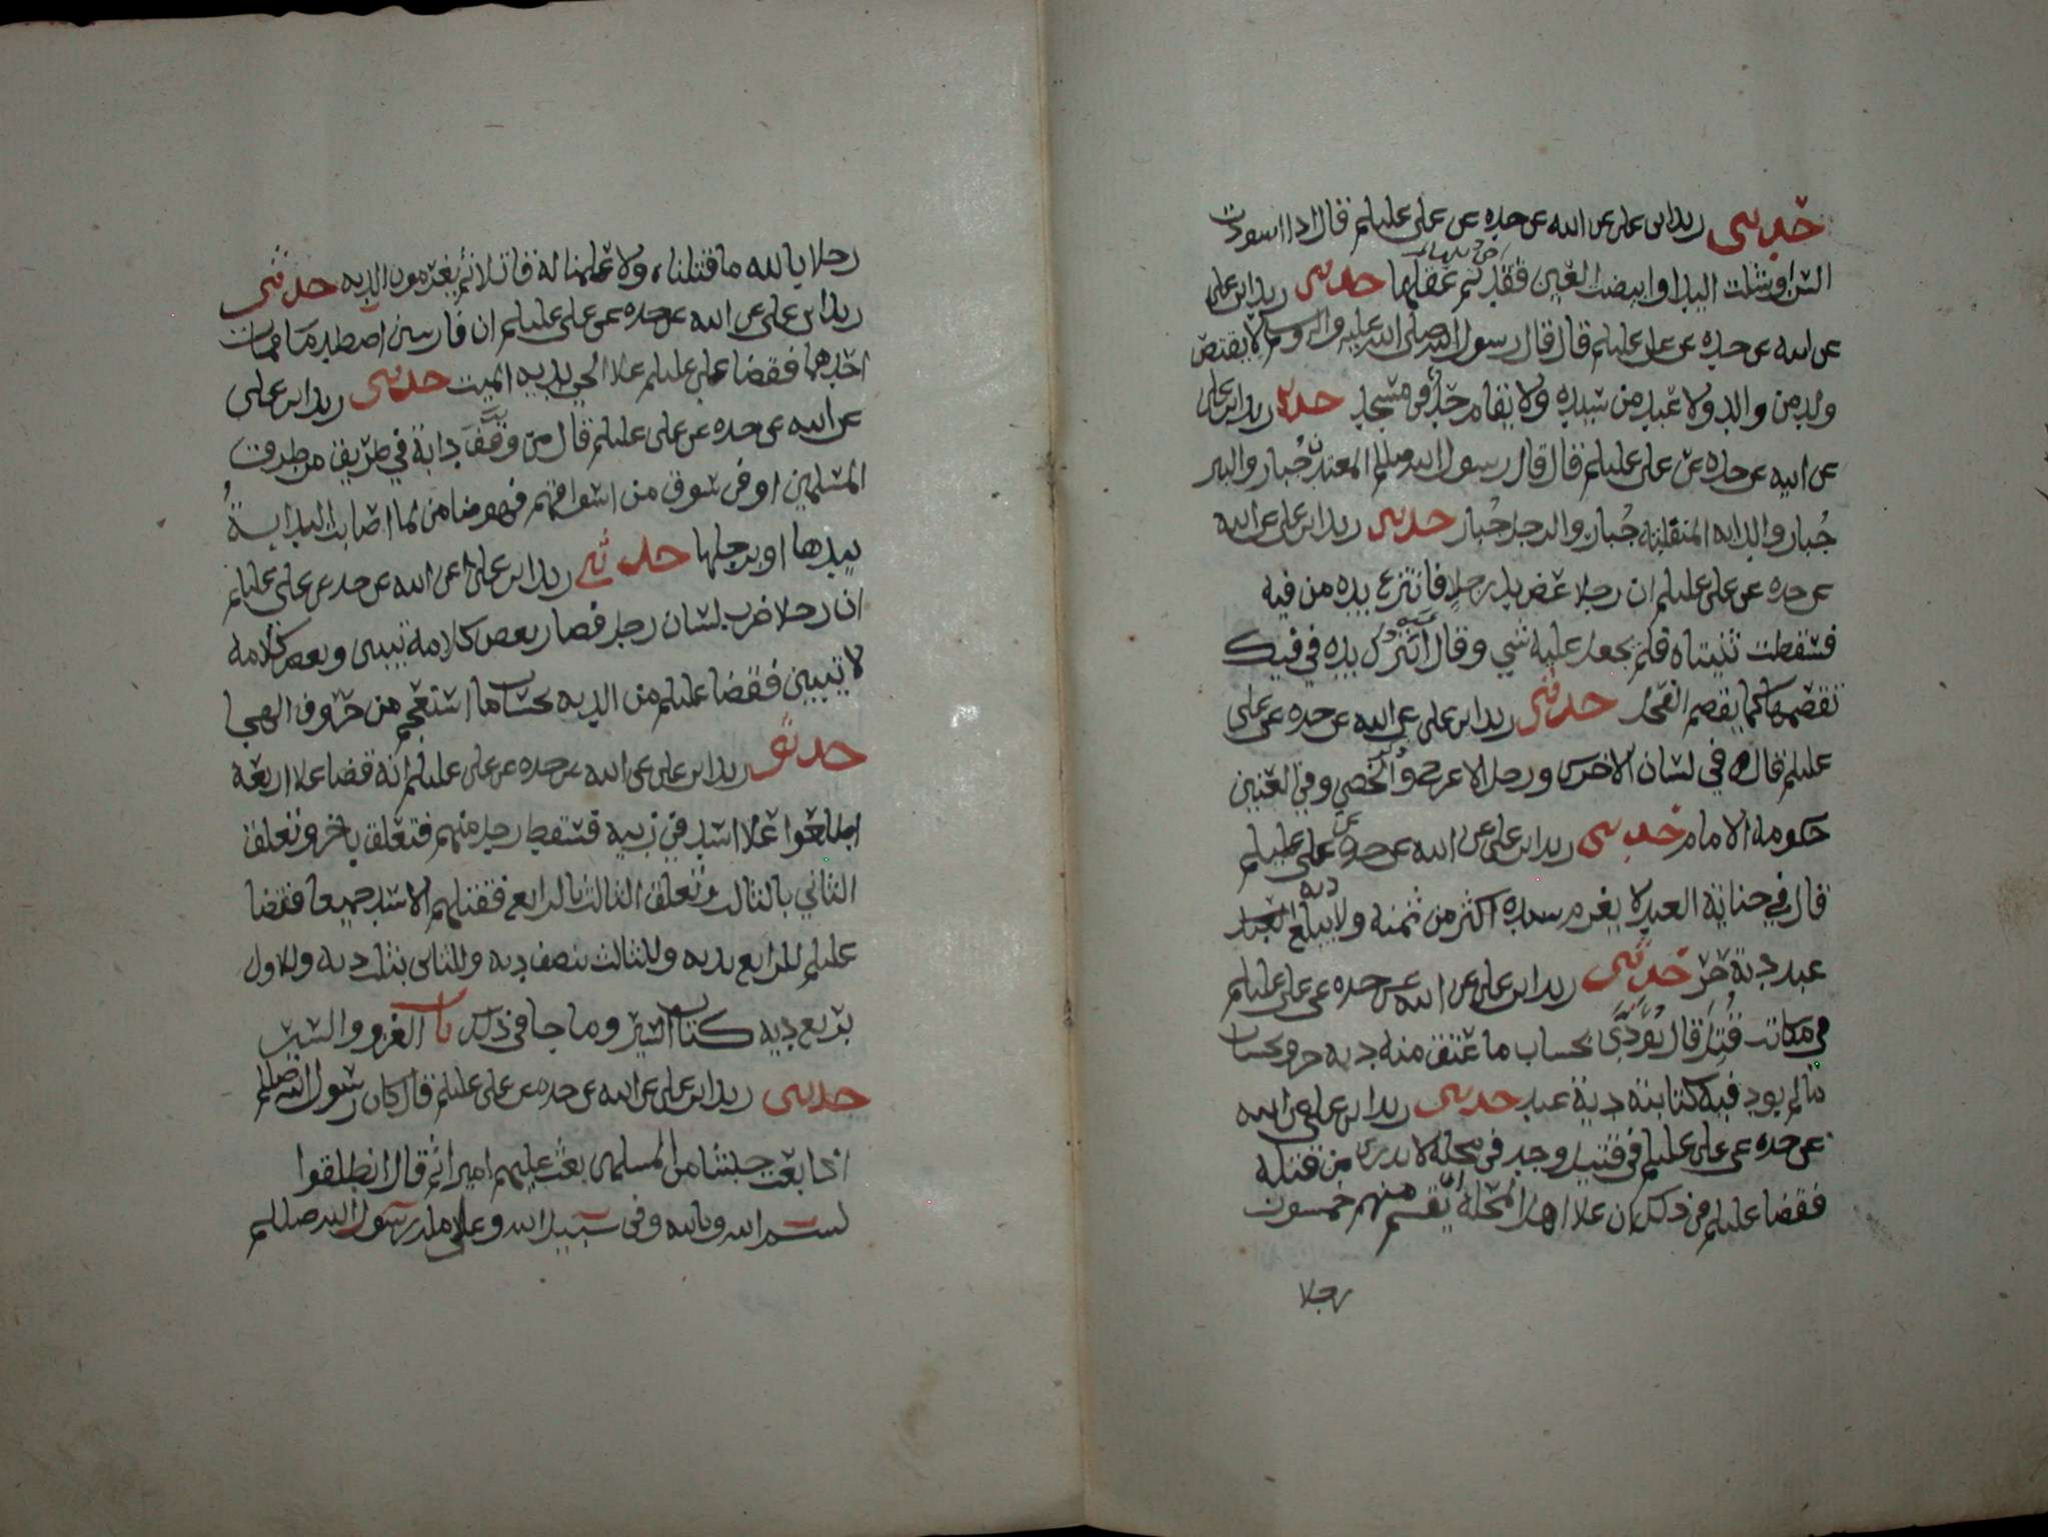 حدثني زيد ابن علي عن ابيه عن جده عن علي عليلم قال اذا اسودت
السن او شلت اليد او ابيضت العين فقد تم عقلها حدثني زيد ابن علي
عن ابيه عن جده عن علي عليلم قال قال رسول الله صلى الله عليه واله وسلم لا يقتص
ولد من والد ولا عبد من سيده ولا يقام حد في مسجد حدثني زيد ابن علي
عن ابيه عن جده عن علي عليلم قال قال رسول الله صللم المعدن جُبار والبير
جُبار والدابه المنفلته جُبار والرجل جُبار حدثني زيد ابن علي عن ابيه
عن جده عن علي عليلم ان رجلا عض يد رجلٍ فانتزع يده من فيه
فسقطت ثنيتاه فلم يجعل عليه شي وقال أيترك يده في فيك
تقضمها كما يقضم الفحل حدثني زيد ابن علي عن ابيه عن جده عن علي
عليلم قال في لسان الاخرس ورجل الاعرج وذكر الخصي وفي العنين
حكومه الامام حدثني زيد ابن علي عن ابيه عن جده عن علي عليلم
قال في جناية العبد لا يغرم سيده اكثر من ثمنه ولا يبلغ دية
عبد دية حر حدثني زيد ابن علي عن ابيه عن جده عن علي عليلم
في مكاتب قُتِلَ قال يُؤدَّى بحساب ما عتق منه ديه حر وبحساب
مالم يود فيه كتابته دية عبد حدثني زيد ابن علي عن ابيه
عن جده عن علي عليلم في قتيل وجد في محله لا يدرى من قتله
فقضا عليلم في ذلك ان علا اهل المحلة ان يقسم منهم خمسون
رجلا
رجلا بالله ما قتلناه ولا علمنا له قاتلا ثم يغرمون الديه حدثني
زيد ابن علي عن ابيه عن جده عن علي عليلم ان فارسين اصطدما فمات
احدهما فقضا علي عليلم علا الحي بديه الميت حدثني زيد ابن علي
عن ابيه عن جده عن علي عليلم قال من وقَّف دابة في طريق من طرق
المسلمين او في سوق من اسواقهم فهو ضامن لما اصابت الدابةُ
بيدها او برجلها حدثني زيد ابن علي عن ابيه عن جده عن علي عليلم
ان رجلا ضرب لسان رجل فصار بعض كلامه تبيين وبعض كلامه
لا تبيين فقضا عليلم من الديه بحساب ما استعجم من حروف الهجا
حدثني زيد ابن علي عن ابيه عن جده عن علي عليلم انه قضا علا اربعة
اطلعوا علا اسد في زبيه فسقط رجل منهم فتعلق باخر وتعلق
الثاني بالثالث وتعلق الثالث بالرابع فقتلهم الاسد جميعا فقضا
عليلم للرابع بديه وللثالث بنصف ديه وللثاني بثلث ديه وللاول
بربع ديه كتاب السير وما جا في ذلك باب الغزو والسير
حدثني زيد ابن علي عن ابيه عن جده عن علي عليلم قال كان رسول الله صللم
اذا بعث جيشا من المسلمين بعث عليهم اميرا ثم قال انطلقوا
بسم الله وبالله وفي سبيل الله وعلى ملة رسول الله صللم